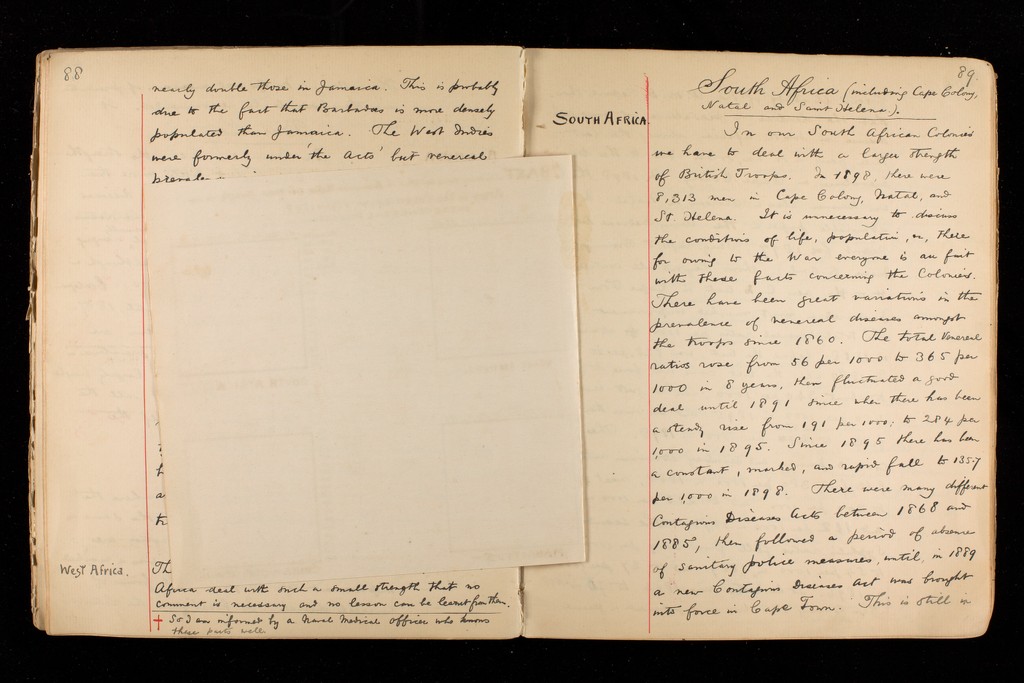 88
nearly double those in Jamaica. This is probably
due to the fact that Barbadoes is more densely
populated than Jamaica. The West Indies
were formerly under 'the Acts' but venereal
West Africa.
Th
Africa deal with such a small strength that no
comment is necessary and no lesson can be learnt from them.
+ So I am informed by a Naval Medical Officer who knows
these parts well.
89.
SOUTH AFRICA.
South Africa (including Cape Colony,
Natal and Saint Helena).
In our South African Colonies
we have to deal with a larger strength
of British Troops. In 1898, there were
8,313 men in Cape Colony, Natal, and
St. Helena. It is unnecessary to discuss
the conditions of life, population, &c, there
for owing to the War everyone is au fait
with these facts concerning the Colonies.
There have been great variations in the
prevalence of venereal diseases amongst
the troops since 1860. The total Venereal
ratios rose from 56 per 1000 to 365 per
1000 in 8 years, then fluctuated a good
deal until 1891 since when there has been
a steady rise from 191 per 1000: to 284 per
1,000 in 1895. Since 1895 there has been
a constant, marked, and rapid fall to 135.7
per 1,000 in 1898. There were many different
Contagious Diseases Acts between 1868 and
1885, then followed a period of absence
of sanitary police measures, until, in 1889
a new Contagious Diseases Act was brought
into force in Cape Town. This is still in